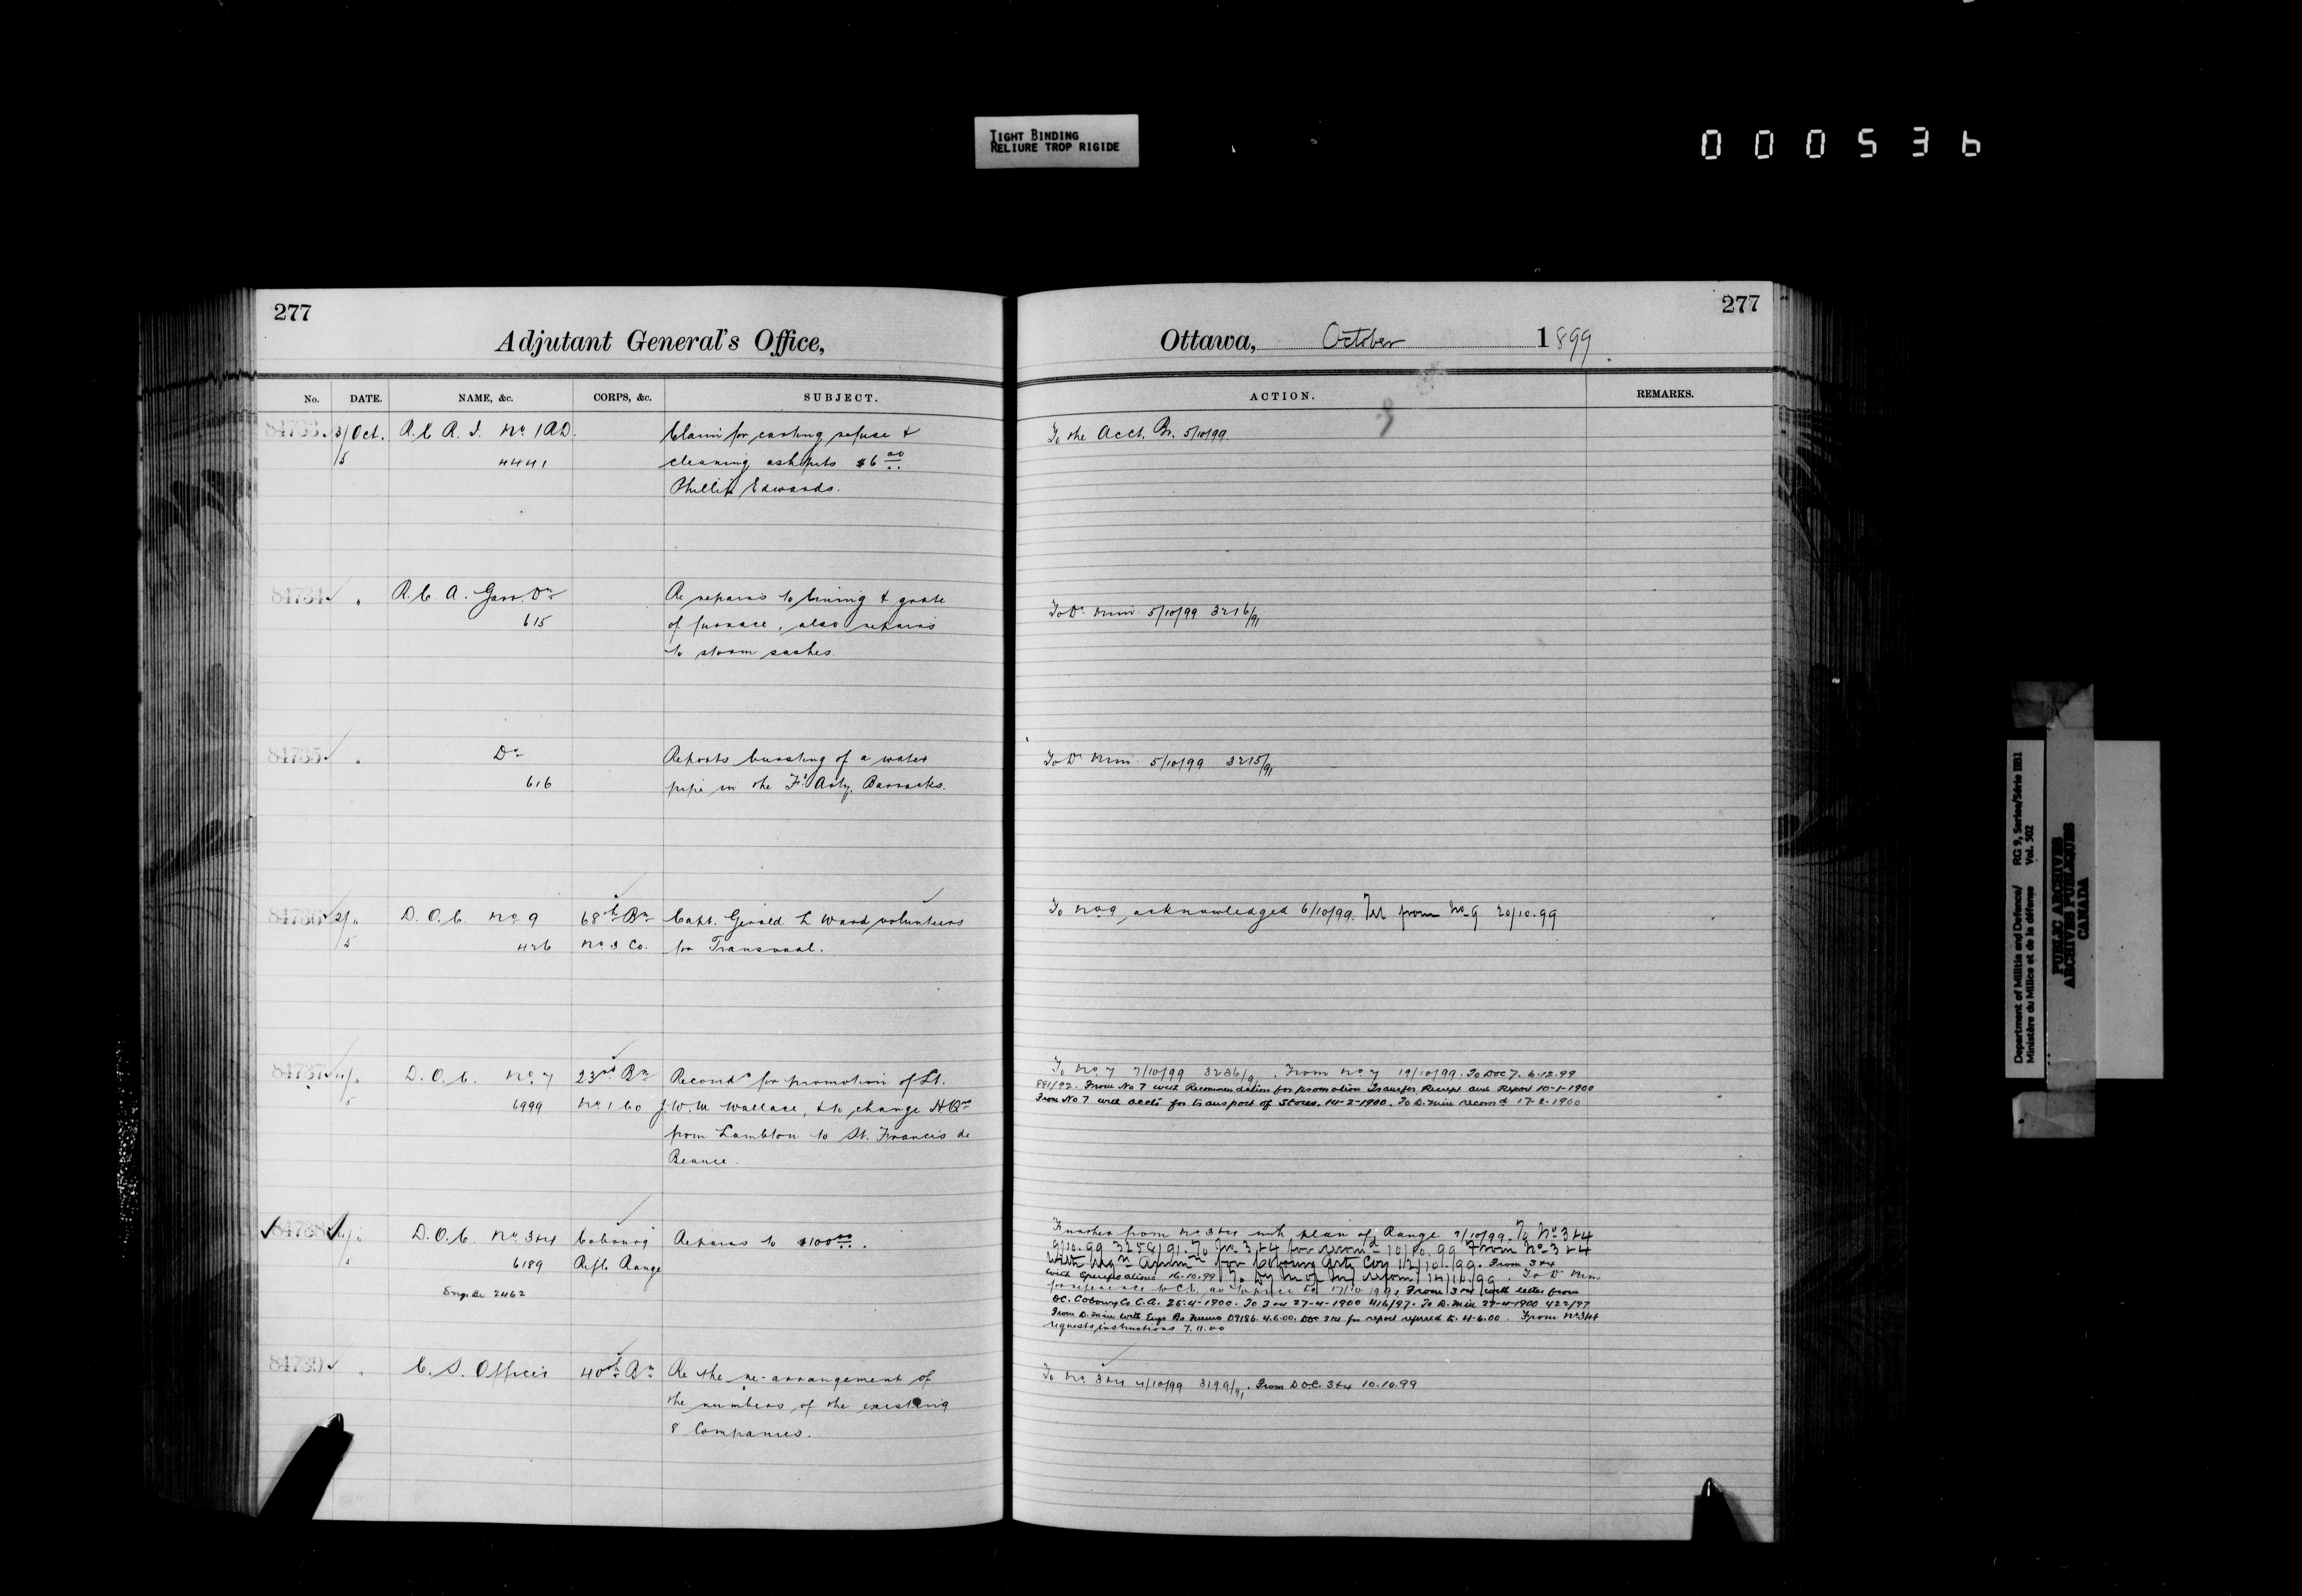 TIGHT BINDING
RELIURE TROP RIGIDE
000536
277
Adjutant General's Office,
No. DATE. NAME, &c. CORPS, &c. SUBJECT.
84733 3/Oct. R.C.A.I. No. 1 A.D. Claim for carting refuse &
/5 4441 cleaning ashpits $6 00
Phillip Edwards.
84734 " R.C.A. Garr. Dn Re repairs to lining & grate
615 of furnace, also repairs
to storm sashes.
84735 " Do Reports bursting of a water
616 pipe in the Fd Arty. Barracks.
84736 2/" D.O.C. No. 9 68th Bn Capt. Gerald L Ward volunteers
/5 426 No. 3 Co. for Transvaal.
84737 4/" D.O.C. No. 7 23rd Bn Recomds for promotion of Lt.
/5 6999 No. 1 Co J.W.M. Wallace, & to change HQrs
from Lambton to St. Francis de
Beauce.
84738 4/" D.O.C. No. 3&4 Cobourg Repairs to $100 00.
/5 6189 Rifle Range
Eng. Br 2462
84739 " C.S. Officer 40th Bn Re the re-arrangement of
the numbers of the existing
8 Companies.
277
Ottawa, October 1899
ACTION. REMARKS.
To the Acct. Br. 5/10/99.
To D. Min. 5/10/99 3216/91
To D. Min. 5/10/99 3215/91
To No. 9 acknowledged 6/10/99. Tel from No. 9 20/10.99
To No. 7 7/10/99 3236/9. From No. 7 19/10/99. To DOC 7. 6.12.99
881/92. From No 7 with Recommendation for promotion Transfer, Receipt and Report 10-1-1900
From No 7 with accts for transport of Stores. 14-2-1900. To D. Min recomd 17-2-1900
Further from No 3&4 with plan of Range 7/10/99. To No. 3&4
9/10.99 3258/91. To No. 3&4 for recomd 10/10.99 From No. 3&4
with for Cobourg Arty Coy 12/10/99. From 3&4
with Specifications 16.10.99 To D. Min
17/10/99 From 3&4 with letter from
OC. Cobourg Co C.A. 25-4-1900. To 3&4 27-4-1900 416/97. To D. Min 27-4-1900 422/97
From D. Min with Engr Br. memo 07186. 4.6.00. DOC 3&4 for report referred to. 4-6.00. From No 3&4
requests instructions 7.11.00
To No. 3&4 4/10/99 3199/91. From D.O.C. 3&4 10.10.99
Department of Militia and Defence/ RG 9, Series/Série IIB1
Ministère du Milice et de la défense Vol. 502
PUBLIC ARCHIVES
ARCHIVES PUBLIQUES
CANADA